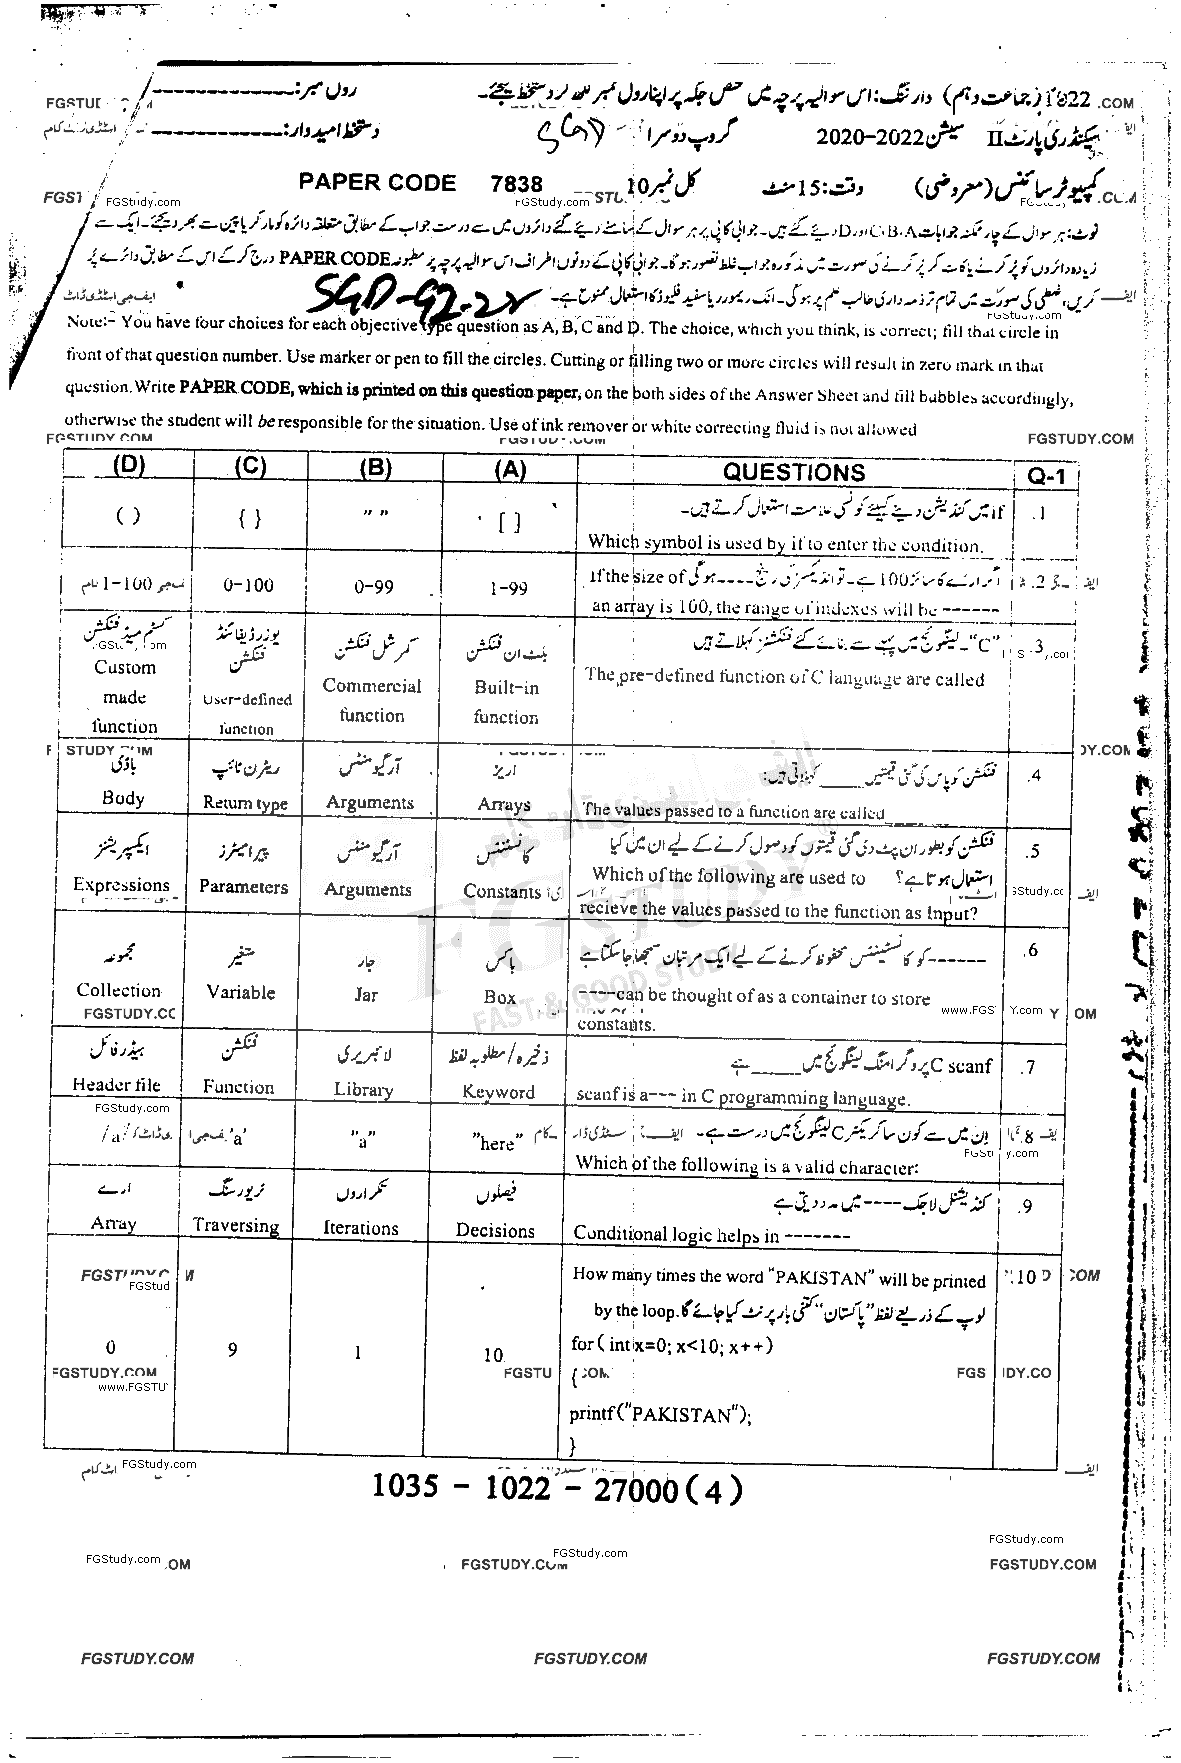 FGSTUDY.COM
رول نمبر:
1022 (جماعت دہم) وارننگ: اس سوالیہ پرچہ میں مختص جگہ پر اپنا رول نمبر لکھ کر دستخط کیجئے۔
سیکنڈری پارٹ II سیشن 2022-2020 گروپ دوسرا SGD دستخط امیدوار:
کمپیوٹر سائنس (معروضی) وقت: 15 منٹ کل نمبر 10 PAPER CODE 7838
نوٹ: ہر سوال کے چار ممکنہ جوابات C، B، A اور D دیے گئے ہیں۔ جوابی کاپی پر ہر سوال کے سامنے دیے گئے دائروں میں سے درست جواب کے مطابق متعلقہ دائرہ کو مارکر یا پین سے بھر دیجئے۔ ایک سے
زیادہ دائروں کو پُر کرنے یا کاٹ کر پُر کرنے کی صورت میں مذکورہ جواب غلط تصور ہوگا۔ جوابی کاپی کے دونوں اطراف اس سوالیہ پرچہ پر مطبوعہ PAPER CODE درج کر کے اس کے مطابق دائرے پُر
کریں، غلطی کی صورت میں تمام تر ذمہ داری طالب علم پر ہوگی۔ انک ریموور یا سفید فلیوڈ کا استعمال ممنوع ہے۔ SGD-G2-22
Note:- You have four choices for each objective type question as A, B, C and D. The choice, which you think, is correct; fill that circle in
front of that question number. Use marker or pen to fill the circles. Cutting or filling two or more circles will result in zero mark in that
question. Write PAPER CODE, which is printed on this question paper, on the both sides of the Answer Sheet and fill bubbles accordingly,
otherwise the student will be responsible for the situation. Use of ink remover or white correcting fluid is not allowed
FGSTUDY.COM
(D) (C) (B) (A) QUESTIONS Q-1
if میں کنڈیشن دینے کیلئے کونسی علامت استعمال کرتے ہیں۔ .1
( ) { } " " [ ]
Which symbol is used by if to enter the condition.
اگر ارے کا سائز 100 ہے۔ تو انڈیکسز کی رینج ---- ہوگی If the size of .2
1-100 0-100 0-99 1-99
an array is 100, the range of indexes will be ------
"C" لینگوئج میں پہلے سے بنائے گئے فنکشنز کہلاتے ہیں .3
کسٹم میڈ فنکشن یوزر ڈیفائنڈ فنکشن کمرشل فنکشن بلٹ ان فنکشن
The pre-defined function of C language are called
Custom made function User-defined function Commercial function Built-in function
فنکشن کو پاس کی گئی قیمتیں _____ کہلاتی ہیں: .4
باڈی ریٹرن ٹائپ آرگومنٹس اریز
Body Return type Arguments Arrays The values passed to a function are called _____
فنکشن کو بطور ان پٹ دی گئی قیمتوں کو وصول کرنے کے لیے ان میں کیا .5
استعمال ہوتا ہے؟ Which of the following are used to
ایکسپریشنز پیرامیٹرز آرگومنٹس کانسٹنٹس
Expressions Parameters Arguments Constants recieve the values passed to the function as Input?
------کو کانسٹینٹس محفوظ کرنے کے لیے ایک مرتبان سمجھا جا سکتا ہے .6
مجموعہ متغیر جار باکس
Collection Variable Jar Box ----can be thought of as a container to store
constants.
C scanf پروگرامنگ لینگوئج میں _____ ہے .7
ہیڈر فائل فنکشن لائبریری ذخیرہ/مطلوبہ لفظ
Header file Function Library Keyword scanf is a--- in C programming language.
ان میں سے کون سا کریکٹر C لینگوئج میں درست ہے۔ .8
/a/ 'a' "a" "here"
Which of the following is a valid character:
کنڈیشنل لاجک ---- میں مدد دیتی ہے .9
ارے ٹریورسنگ تکراروں فیصلوں
Array Traversing Iterations Decisions Conditional logic helps in -------
How many times the word "PAKISTAN" will be printed .10
by the loop. لوپ کے ذریعے لفظ "پاکستان" کتنی بار پرنٹ کیا جائے گا
0 9 1 10
for ( int x=0; x<10; x++)
{
printf("PAKISTAN");
}
1035 - 1022 - 27000 (4)
FGStudy.com FGStudy.com FGStudy.com
FGSTUDY.COM FGSTUDY.COM
FGSTUDY.COM FGSTUDY.COM FGSTUDY.COM
FGSTUDY
FAST & GOOD STUDY